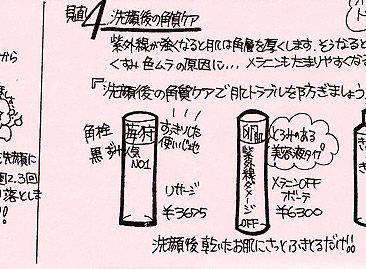 4 洗顔後の角質ケア
紫外線が強くなると肌は角層を厚くします。そうなると
くすみ色ムラの原因に... メラニンもたまりやすくなる
『洗顔後の角質ケアで肌トラブルを防ぎましょう
から
洗顔に
2.3回
落としま
!!
角栓
黒ずみ
毎付
人気
NO1
すっきりした
使いごこち
リサージ
¥3675
肌
紫外線ダメージ
OFF
とろみのある
美容液タイプ
メラニンOFF
ボーテ
¥6300
洗顔後乾いたお肌にさっとふきとるだけ!!